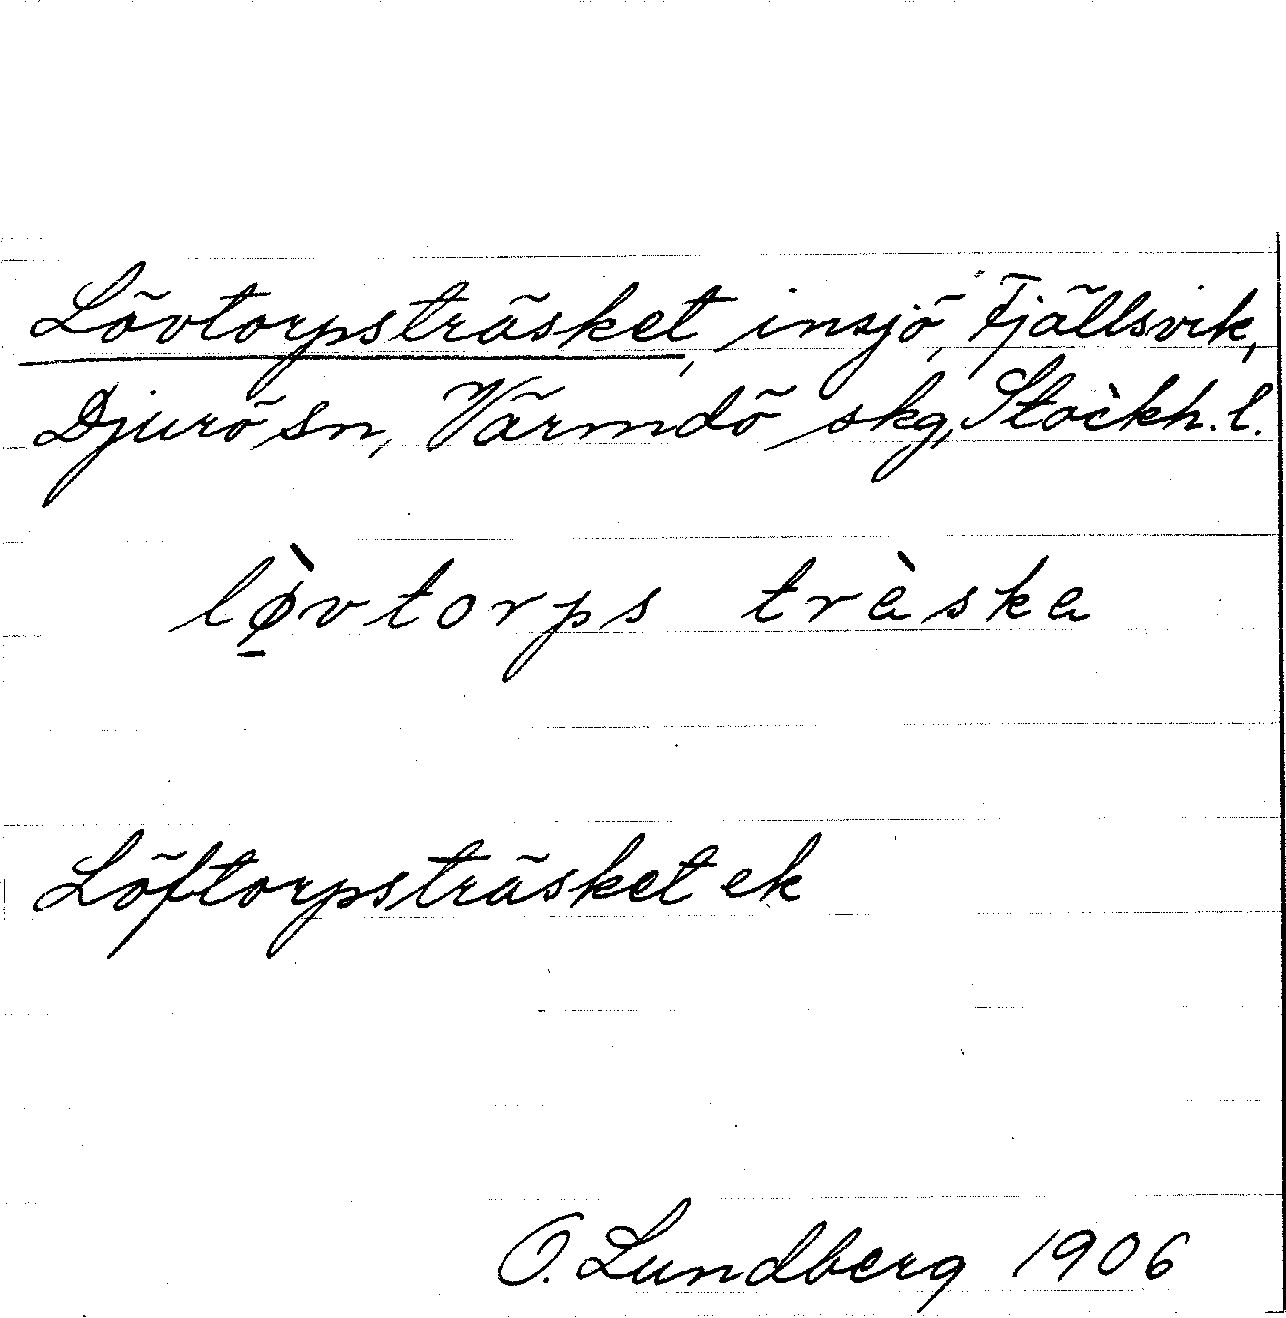 Lövtorpsträsket, insjö, Fjällsvik,
Djurö sn, Värmdö skg, Stockh. l.
lø̱̀vtorps trèska
Löftorpsträsket ek
O. Lundberg 1906